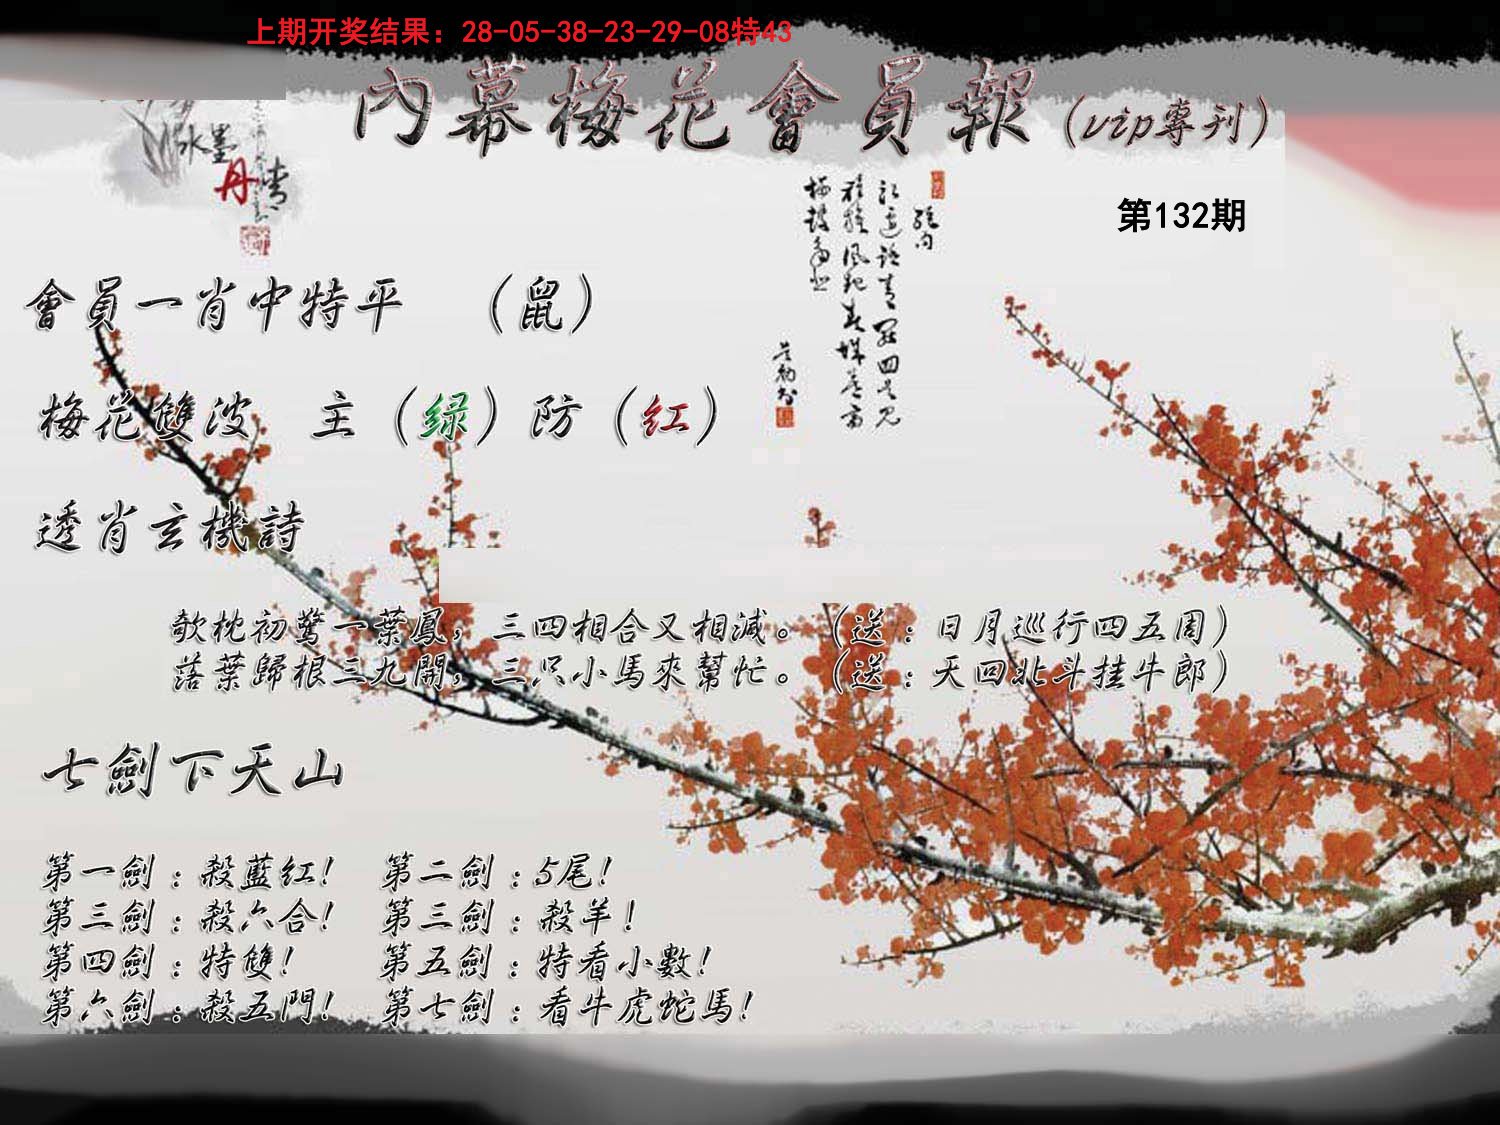 上期开奖结果：28-05-38-23-29-08特43
內幕梅花會員報（vip專刊）
水墨
丹青
第132期
會員一肖中特平　（鼠）
梅花雙波　主（绿）防（红）
透肖玄機詩
欹枕初驚一葉鳳，三四相合又相減。（送：日月巡行四五周）
落葉歸根三九開，三只小馬來幫忙。（送：天回北斗挂牛郎）
七劍下天山
第一劍：殺藍红！　第二劍：5尾！
第三劍：殺六合！　第三劍：殺羊！
第四劍：特雙！　第五劍：特看小數！
第六劍：殺五門！　第七劍：看牛虎蛇馬！